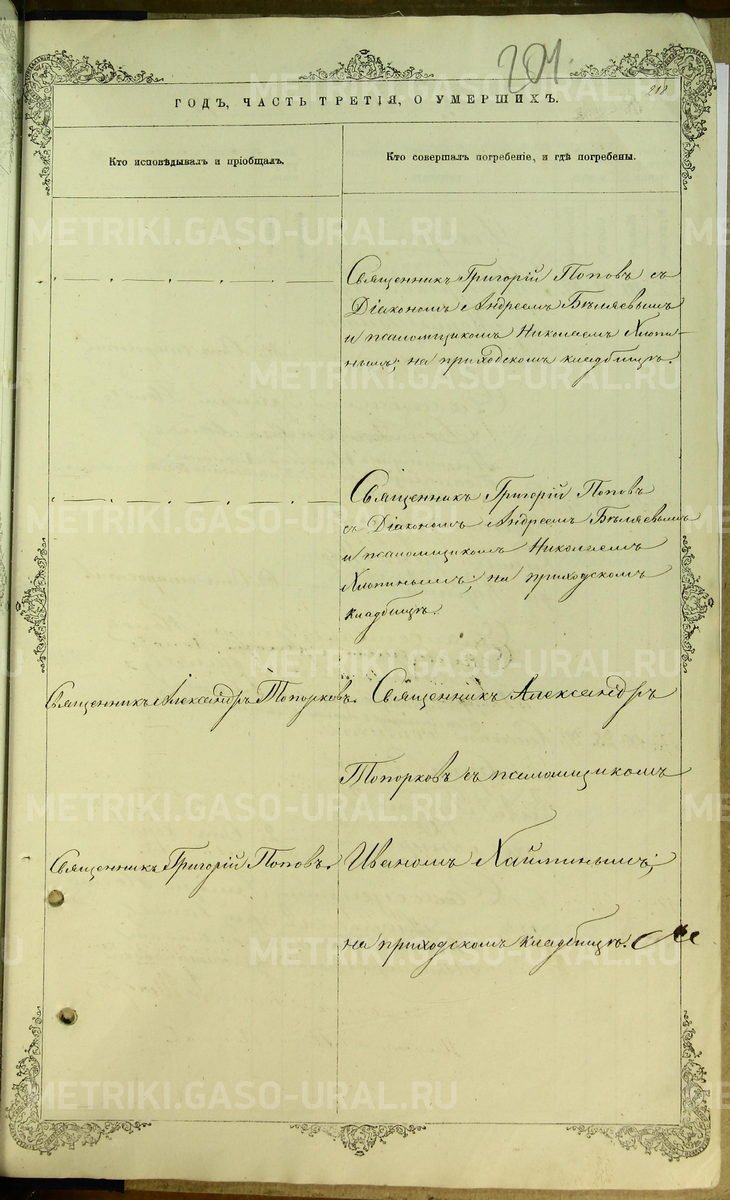 201.
212
ГОДЪ, ЧАСТЬ ТРЕТІЯ, О УМЕРШИХЪ.
Кто исповѣдывалъ и пріобщалъ.
Кто совершалъ погребеніе, и гдѣ погребены.
Священникъ Григорій Поповъ съ
Діакономъ Андреемъ Бѣляевымъ
и псаломщикомъ Николаемъ Хлопи-
нымъ; на приходскомъ кладбищѣ.
Священникъ Григорій Поповъ
съ Діакономъ Андреемъ Бѣляевымъ
и псаломщикомъ Николаемъ
Хлопинымъ; на приходскомъ
кладбищѣ.
Священникъ Александръ Топорковъ.
Священникъ Александръ
Топорковъ съ псаломщикомъ
Священникъ Григорій Поповъ.
Иваномъ Хайминымъ;
на приходскомъ кладбищѣ.
METRIKI.GASO-URAL.RU